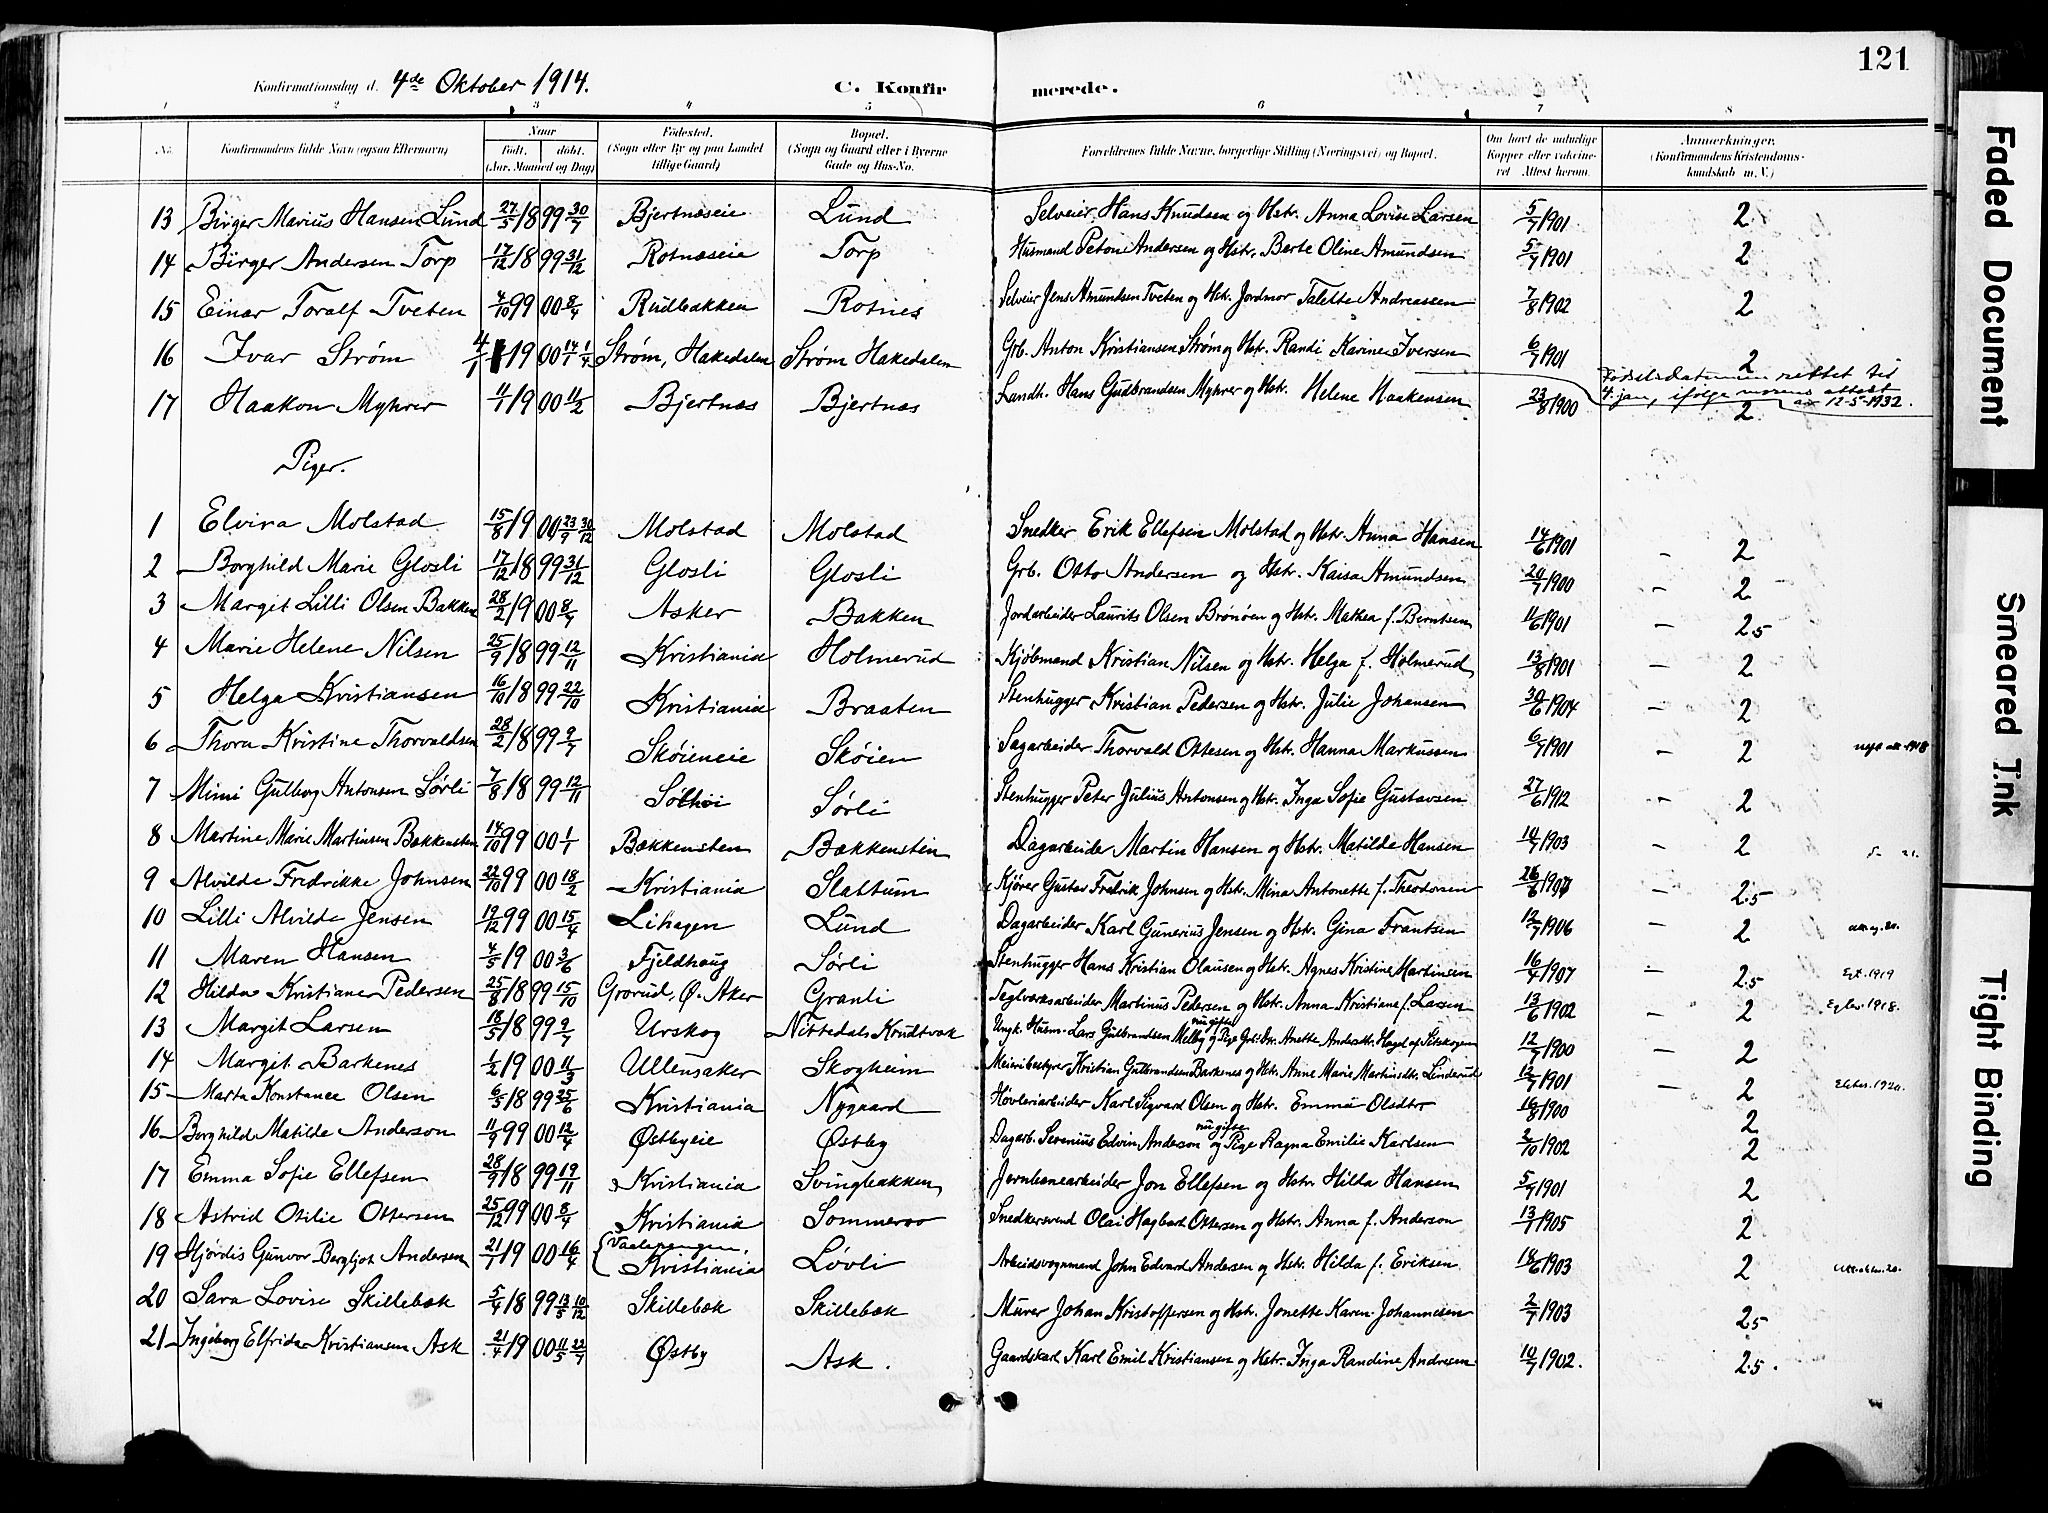 121
Konfirmationsdag d. 4de Oktober 1914. C. Konfirmerede.
1 2 3 4 5 6 7 8
No. Konfirmandens fulde Navn (ogsaa Efternavn) Naar Født. døbt. (Aar, Maaned og Dag) Fødested. (Sogn eller By og paa Landet tillige Gaard) Bopæl. (Sogn og Gaard eller i Byerne Gade og Hus-No. Forældrenes fulde Navne, borgerlige Stilling (Næringsvei) og Bopæl. Om havt de naturlige Kopper eller vakcineret. Attest herom. Anmerkninger. (Konfirmandens Kristendomskundskab m. V.)
13 Birger Marius Hansen Lund 27/5 1899 30/7 Bjertnæseie Lund Selveier Hans Knudsen og Hstr. Anna Lovise Larsen 5/7 1901 2
14 Birger Andersen Torp 17/12 1899 31/12 Rotnæseie Torp Husmand Peton Andersen og Hstr. Berte Oline Amundsen 5/7 1901 2
15 Einar Toralf Tveten 4/10 99 00 8/4 Rudbakken Rotnes Selveier Jens Amundsen Tveten og Hstr. Jordmor Talette Andreassen 7/8 1902 2
16 Ivar Strøm 4/1 1900 14/1 1/4 Strøm, Hakedalen Strøm Hakedalen Grb. Anton Kristiansen Strøm og Hstr. Randi Karine Iversen 6/7 1901 2
Fødselsdatumen rettet til 4. jan, ifølge attest av 12-5-1932.
17 Haakon Myhrer 11/1 1900 11/2 Bjertnæs Bjertnæs Landh. Hans Gudbrandsen Myhrer og Hstr. Helene Haakensen 23/8 1900 2
Piger.
1 Elvira Molstad 15/8 1900 23/9 30/12 Molstad Molstad Snedker Erik Ellefsen Molstad og Hstr. Anna Hansen 14/6 1901 - 2
2 Borghild Marie Glosli 17/12 1899 31/12 Glosli Glosli Grb. Otto Andersen og Hstr. Kaisa Amundsen 20/7 1900 - 2
3 Margit Lilli Olsen Bakken 28/2 1900 8/7 Asker Bakken Jordarbeider Laurits Olsen Brønøen og Hstr. Mathea f. Berntsen 11/6 1901 - 2.5
4 Marie Helene Nilsen 25/9 1899 12/11 Kristiania Holmerud Kjøbmand Kristian Nilsen og Hstr. Helga f. Holmerud 13/8 1901 - 2
5 Helga Kristiansen 16/10 1899 22/10 Kristiania Braaten Stenhugger Kristian Pedersen og Hstr. Julie Johansen 30/6 1904 - 2
6 Thora Kristine Thorvaldsen 28/2 1899 9/7 Skøieneie Skøien Sagarbeider Thorvald Ottesen og Hstr. Hanna Markussen 6/7 1901 - 2
7 Mimi Gulborg Antonsen Sørli 7/8 1899 12/11 Sølhøi Sørli Stenhugger Peter Julius Antonsen og Hstr. Inga Sofie Gustavsen 27/6 1912 - 2
8 Martine Marie Martinsen Bakkensten 14/10 99 00 1/1 Bækkensten Bækkensten Dagarbeider Martin Hansen og Hstr. Matilde Hansen 10/7 1903 - 2
9 Alvilde Fredrikke Johnsen 22/10 99 00 18/2 Kristiania Slattum Kjører Gustav Fredrik Johnsen og Hstr. Mina Antonette f. Theodorsen 26/6 1907 - 2.5
10 Lilli Alvilde Jensen 19/12 99 00 15/4 Lihagen Lund Dagarbeider Karl Gunerius Jensen og Hstr. Gina Frantsen 12/7 1906 - 2
11 Maren Hansen 4/5 1900 3/6 Fjeldhaug Sørli Stenhugger Hans Kristian Olausen og Hstr. Agnes Kristine Martinsen 16/4 1907 - 2.5
12 Hilda Kristiane Pedersen 25/8 1899 15/10 Grorud, Ø. Aker Granli Teglværksarbeider Martinus Pedersen og Hstr. Anna Kristiane f. Larsen 13/6 1902 - 2
13 Margit Larsen 18/5 1899 9/7 Urskog Nittedals Krudtværk Ungk. Husm. Lars Gulbrandsen Melby nu gifte og Pige Anette Andersdtr. Høgd af Setskogen 12/7 1900 - 2
14 Margit Barkenes 1/2 1900 11/3 Ullensaker Skogheim Meieribestyrer Kristian Gulbrandsen Barkenes og Hstr. Anne Marie Martinsdtr. Linderud 12/7 1901 - 2
15 Marta Konstance Olsen 6/5 1899 25/6 Kristiania Nygaard Høvleriarbeider Karl Sigvard Olsen og Hstr. Emma Olsdtr 16/8 1900 2
16 Borghild Matilde Anderson 11/9 99 00 12/4 Østbyeie Østby Dagarb. Severnius Edvin Anderson nu gifte og Pige Ragna Emilie Karlsen 2/10 1902 2
17 Emma Sofie Ellefsen 28/9 1899 19/11 Kristiania Svingbakken Jernbanearbeider Jon Ellefsen og Hstr. Hilda Hansen 5/7 1901 2
18 Astrid Otilie Ottersen 25/12 99 00 8/4 Kristiania Sommero Snedkersvend Olai Hagbart Ottersen og Hstr. Anna f. Anderson 13/7 1905 2
19 Hjørdis Gunvor Bergljot Andersen 21/1 1900 16/4 Vaalerengen, Kristiania Løvli Arbeidsvognmand John Edvard Andersen og Hstr. Hilda f. Eriksen 18/6 1903 2
20 Sara Lovise Skillebæk 5/4 1899 13/5 10/12 Skillebæk Skillebæk Murer Johan Kristoffersen og Hstr. Jonette Karen Johannesen 2/7 1903 2.5
21 Ingeborg Elfrida Kristiansen Ask 21/4 1900 11/5 22/7 Østby Ask. Gaardskarl Karl Emil Kristiansen og Hstr. Inga Randine Andresen 10/7 1902. 2.5.
Faded Document
Smeared Ink
Tight Binding